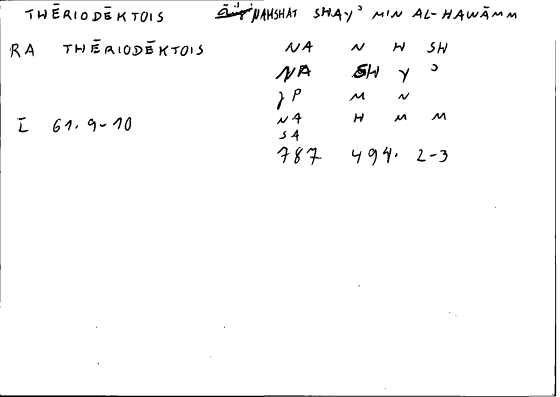 THĒRIODĒKTOIS NAHSHAT SHAY' MIN AL-HAWĀMM
RA THĒRIODĒKTOIS NA N H SH
NA SH Y '
JP M N
I 61.9-10 NA H M M
SA
787 494. 2-3